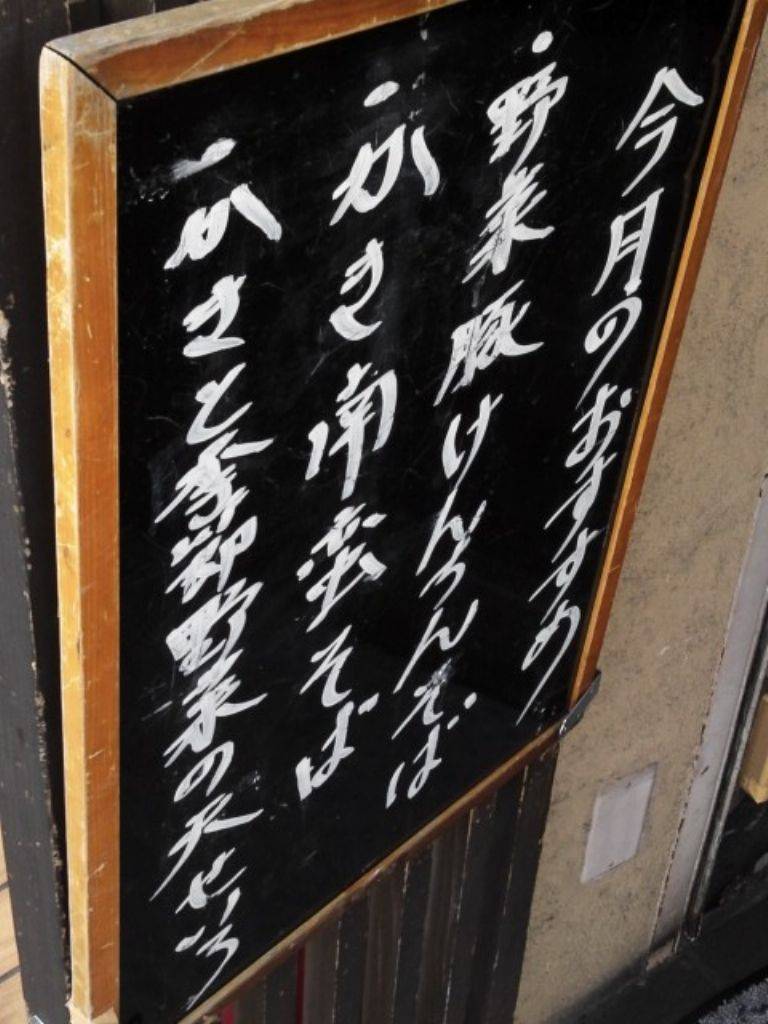 今月のおすすめ
・野菜豚けんちんそば
・かき南蛮そば
・かきと季節野菜の天せいろ